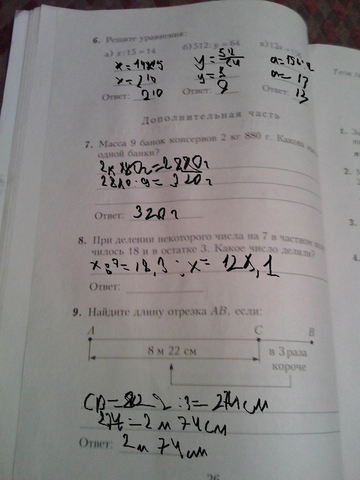 6. Решите уравнения:
а) x : 15 = 14
б) 512 : y = 64
x = 14·15
x = 210
y = 8
Ответ: 210
Ответ: 8
Ответ: 13
Дополнительная часть
7. Масса 9 банок консервов 2 кг 880 г. Какова
одной банки?
2880 : 9 = 320 г
Ответ: 320 г
8. При делении некоторого числа на 7 в частном
чилось 18 и в остатке 3. Какое число делили?
x : 7 = 18,3 ; x = 128,1
Ответ:
9. Найдите длину отрезка AB, если:
A C B
8 м 22 см
в 3 раза
короче
822 : 3 = 274 см
274 = 2 м 74 см
Ответ: 2 м 74 см
26